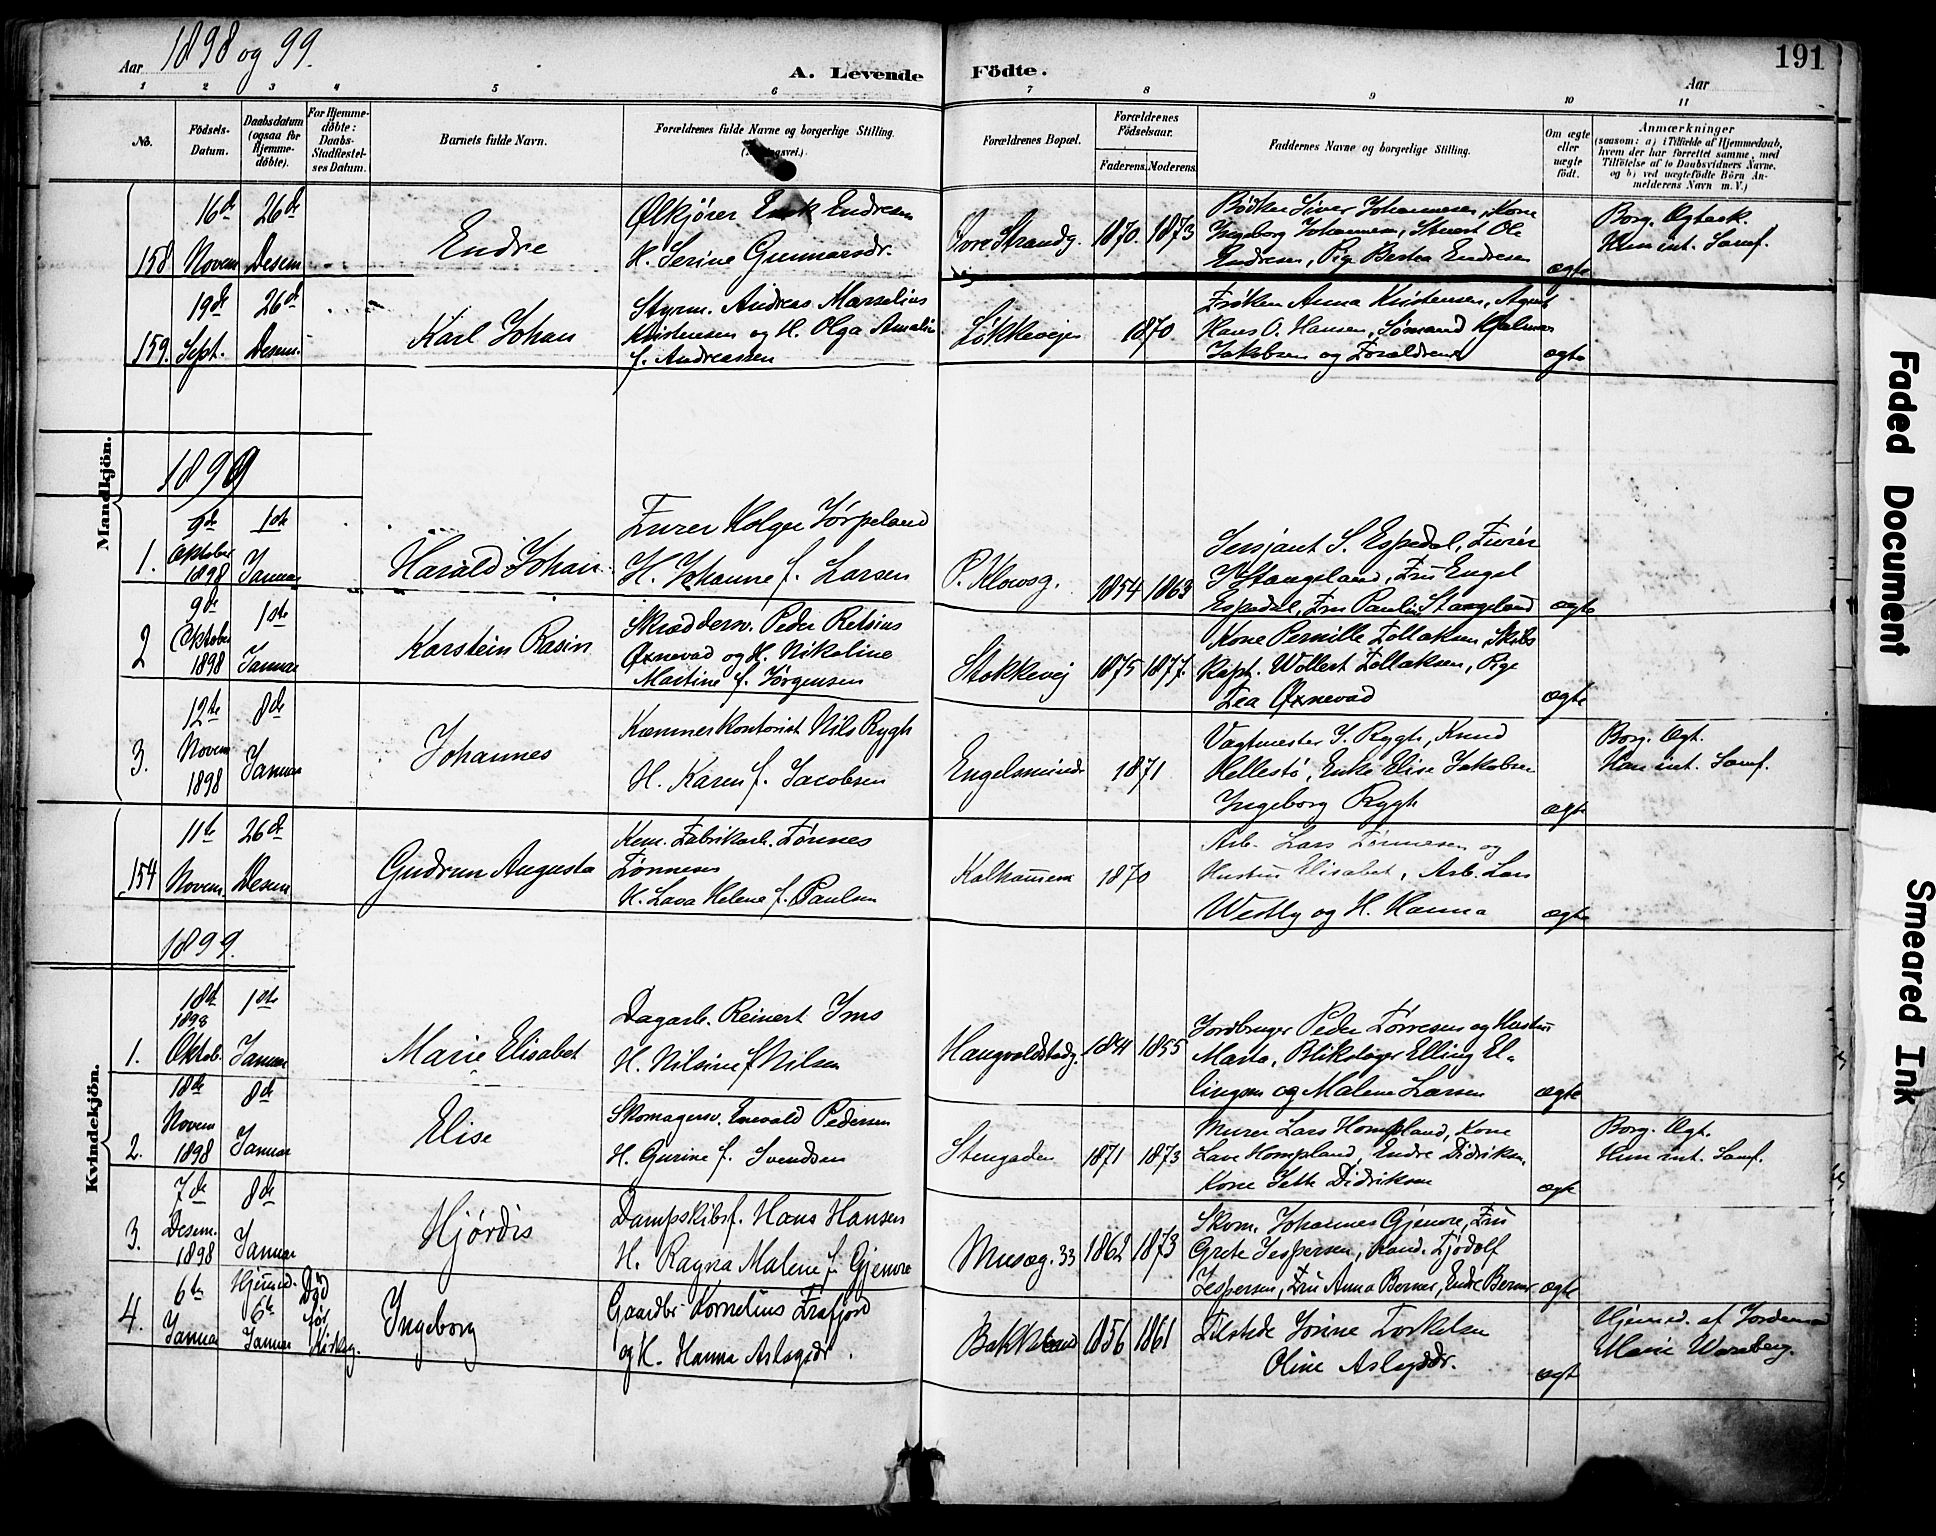 Aar 1898 og 99.
A. Levende Födte.
Aar
191
1 2 3 4 5 6 7 8 9 10 11
No.
Födsels-
Datum.
Daabsdatum
(ogsaa for
Hjemme-
døbte).
For Hjemme-
døbte:
Daabs-
Stadfæstel-
ses Datum.
Barnets fulde Navn.
Forældrenes fulde Navne og borgerlige Stilling.
Forældrenes Bopæl.
Forældrenes
Födselsaar.
Faderens. Moderens.
Faddernes Navne og borgerlige Stilling.
Om ægte
eller
uægte
født.
Anmærkninger
(saasom: a) i Tilfælde af Hjemmedaab,
hvem der har forrettet samme, med
Tilföielse af to Daabsvidners Navne,
og b) ved uægtefödte Börn An-
melderens Navn m. V.)
Mandkjön.
158
16de
Novem
26de
Desem
Endre
Ølkjører Enok Endresen
H. Serine Gunnarsdr.
Øvre Strandg.
1870. 1873
Bødker Siver Johannesen, Kone
Ingeborg Johannesen, Stuert Ole
Endresen, Pige Bertha Endresen
ægte
Borg. Ægtesk.
Hun int. Samf.
159.
19de
Sept.
26de
Desem.
Karl Johan
Styrm. Andreas Marselius
Kristensen og H. Olga Amalie
f. Andreassen
Løkkevejen
1870
Frøken Anna Kristensen, Agent
Hans O. Hansen, Sømand Hjalmar
Jakobsen og Forældrene
ægte
1899
1.
9de
Oktober
1898
1ste
Januar
Harald Johan
Furer Holger Jørpeland
H. Johanne f. Larsen
P. Klowsg.
1854 1863
Sersjant S. Espedal, Furer
Stangeland, Fru Engel
Espedal, Fru Pauline Stangeland
ægte
2
9de
Oktober
1898
1ste
Januar
Karstein Rasin
Skræddersv. Peder Retsius
Øxnevad og H. Nikoline
Martine f. Jørgensen
Stokkevej
1875 1877.
Kone Pernille Follaksen, Skibs
Kapt. Wollert Follaksen, Pige
Lea Øxnevad
ægte
3.
12te
Novem
1898
8de
Januar
Johannes
Kæmnerkontorist Nils Rygh
H. Karen f. Jacobsen
Engelsminde
1871
Vagtmester S. Rygh, Knud
Hellestø, Enke Elise Jakobsen
Ingeborg Rygh
ægte
Borg. Ægt.
Han int. Samf.
154
11te
Novem.
26de
Desem
Gudrun Augusta
Kem. Fabrikarb. Tønnes
Tønnesen
H. Lava Helene f. Paulsen
Kalhammern
1870
Arb. Lars Tønnesen og
Hustru Elisabet, Arb. Lars
Westby og H. Hanna
ægte
1899.
Kvindekjön.
1.
18de
1898
Oktob.
1ste
Januar
Marie Elisabet
Dagarb. Reinert Ims
H. Nilsine f Nilsen
Haugvaldstadg.
1841 1855
Jordbruger Peder Tørresen og Hustru
Marta, Blikslager Elling El-
lingsen og Malene Larsen
ægte
2.
18de
Novem
1898
8de
Januar
Elise
Skomagersv. Enevald Pedersen
H. Gurine f. Svendsen
Stengaden
1871 1873
Murer Lars Hompland, Kone
Lave Hompland, Endre Didriksen,
Kone Sethe Didriksen
ægte
Borg. Ægt.
Hun int. Samf.
3.
7de
Desem.
1898
8de
Januar
Hjørdis
Dampskibsf. Hans Hansen
H. Ragna Malene f. Gjemre
Musæg. 33
1862 1873
Skom. Johannes Gjemre, Fru
Grete Jespersen, Kand. Tjodolf
Jespersen, Fru Anna Berner, Endre Berner
ægte
4.
6te
Januar
Hjemmed.
6te
Januar
Død
før
Kirkeg.
Ingeborg
Gaardbr. Kornelius Frafjord
og H. Hanna Aslagsdr.
Bakkeland
1856 1861
Tilstede Jorine Torkelsen
Oline Aslagsdr.
ægte
Hjemmed. af Jordemor
Marie Warberg.
Faded Document
Smeared Ink